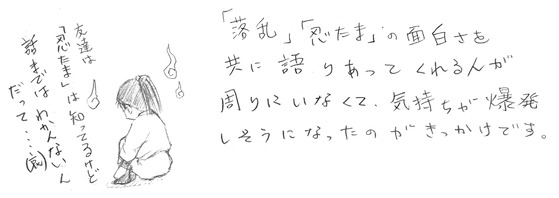 「落乱」「忍たま」の面白さを
共に語りあってくれるんが
周りにいなくて、気持ちが爆発
しそうになったのがきっかけです。
友達は
「忍たま」は知ってるけど
話まではわかんないん
だって…(哀)